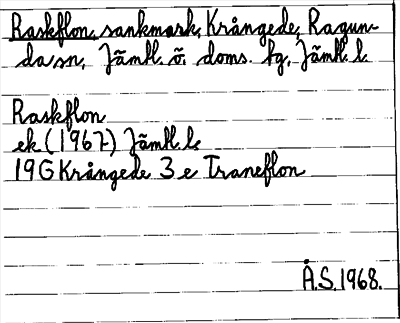 Raskflon, sankmark, Krångede, Ragun-
da sn, Jämtl. ö. doms. fg, Jämtl. l.
Raskflon
ek (1967) Jämtl. l.
19G Krångede 3 e Traneflon
Å.S. 1968.